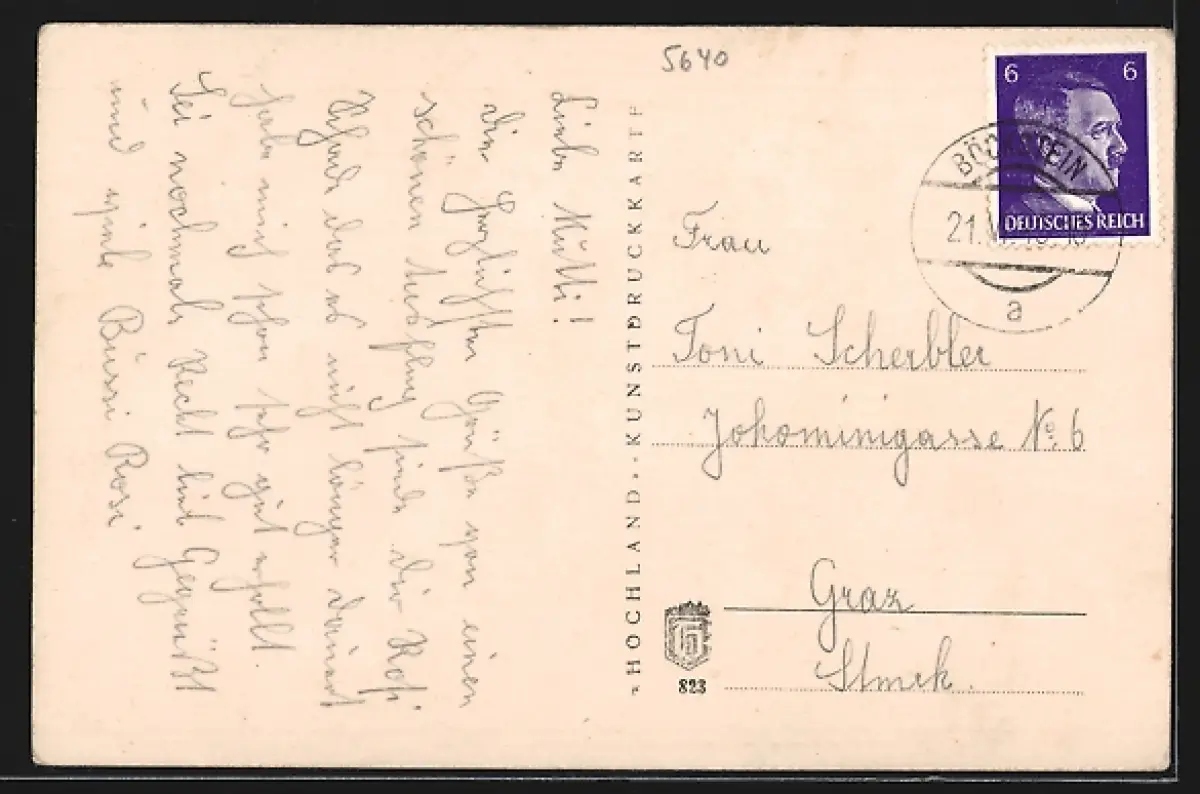 5640
Liebe Mutti!
Die herzlichsten Grüße von einen
schönen Ausflug sendet dir Rosi.
Schade das es nicht länger dauert
habe mich schon sehr gut erholt.
Sei nochmals Recht lieb Gegrüßt
und viele Bussi Rosi
"HOCHLAND"-KUNSTDRUCKKARTE
823
6 6
DEUTSCHES REICH
BÖCKSTEIN
21.
a
Frau
Toni Scherbler
Johominigasse No. 6
Graz
Stmrk.